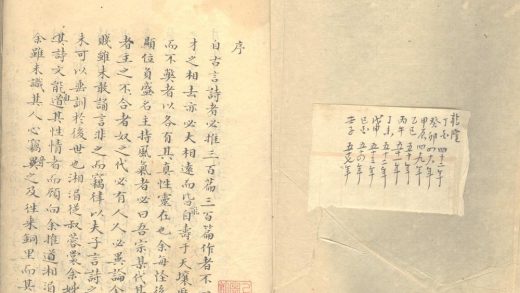 乾隆
丁酉 四十二年
癸卯 四十八年
甲辰 四十九年
乙巳 五十年
丙午 五十一年
丁未 五十二年
戊申 五十三年
己酉 五十四年
壬子 五十七年
序
自古言詩者必推三百篇三百篇作者不
才之相去亦必大相遠而皆自壽于天壤
而不獘者以各有其真性靈在也余每怪
顯位負盛名主持風氣者必曰吾宗某代某
者主之不合者奴之代必有人人必異論
賤雖未敢誦言非之而竊律以夫子言詩之
未可以垂訓於後世也湘湄從叔蓉裳余
其詩文能道其性情者而顧向余推道湘湄
余雖未識其人心竊異之及往来銅里而其